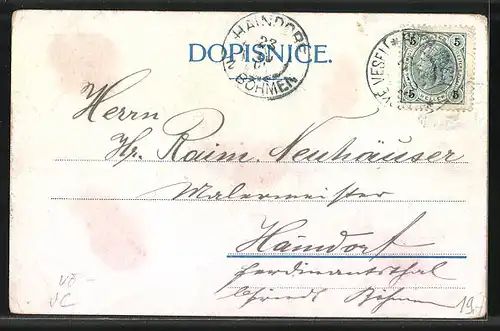 HAINDORF
BÖHMEN
DOPISNICE.
VESELÍ
5 5
5 5
Herrn
Hr. Raim. Neuhäuser
Malermeister
Haindorf
Ferdinantsthal
Böhmen